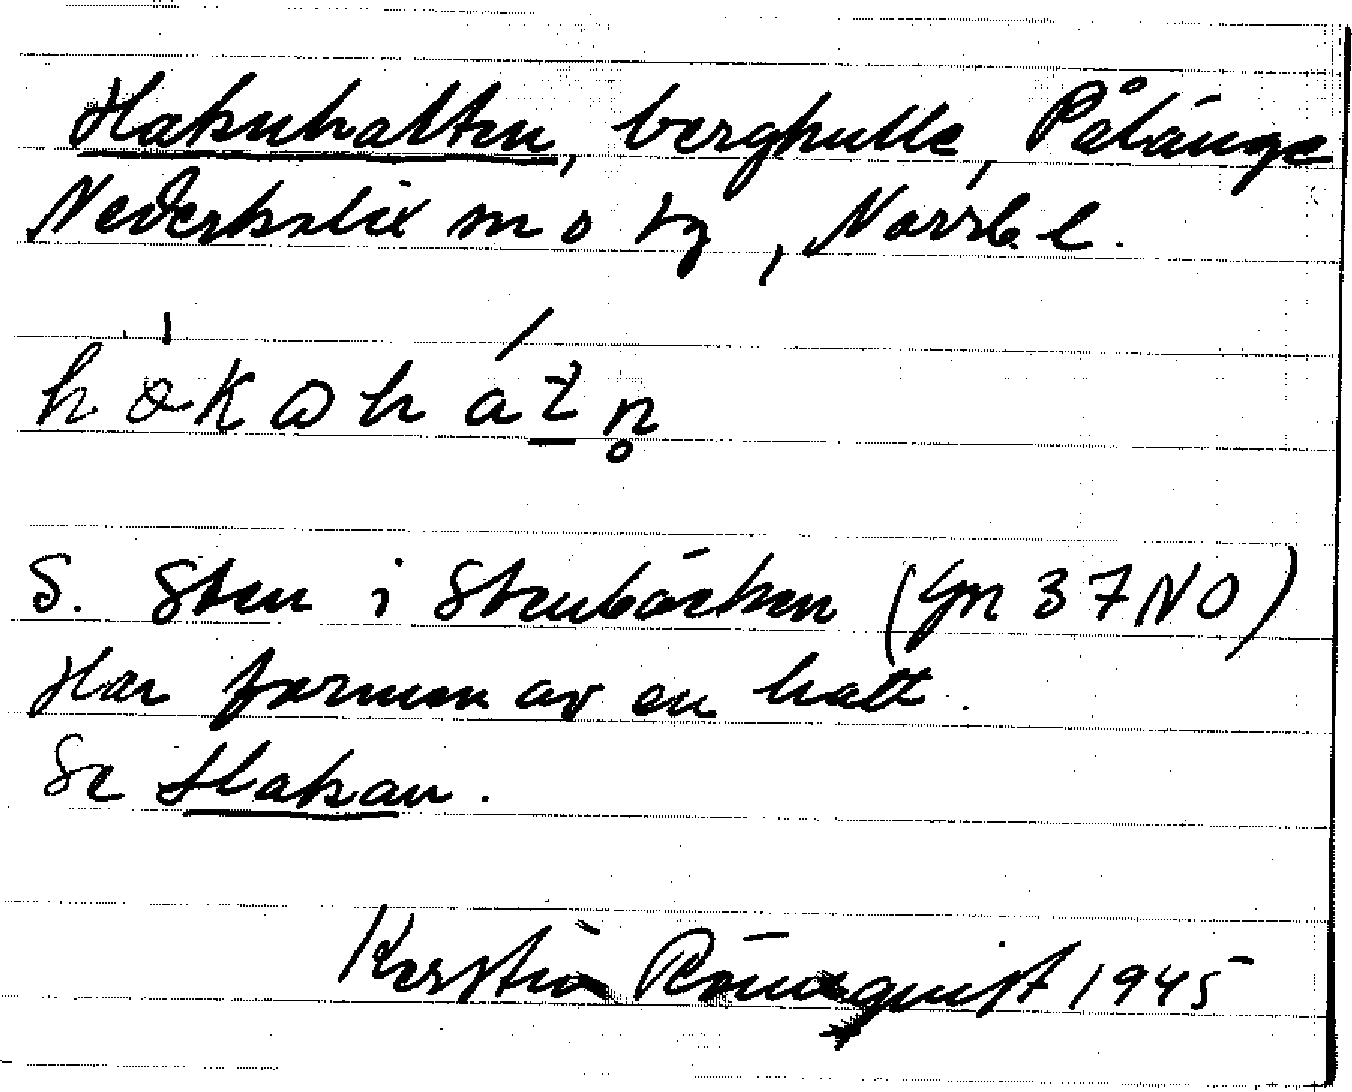 Hakuhatten, bergkulle, Pålänge
Nederkalix sn o tg, Norrb. l.
hákωhátn̥
S. Sten i Stenbäcken (gm 37 NO)
Har formen av en hatt.
Se Hakan.
Kerstin Rönnquist 1945